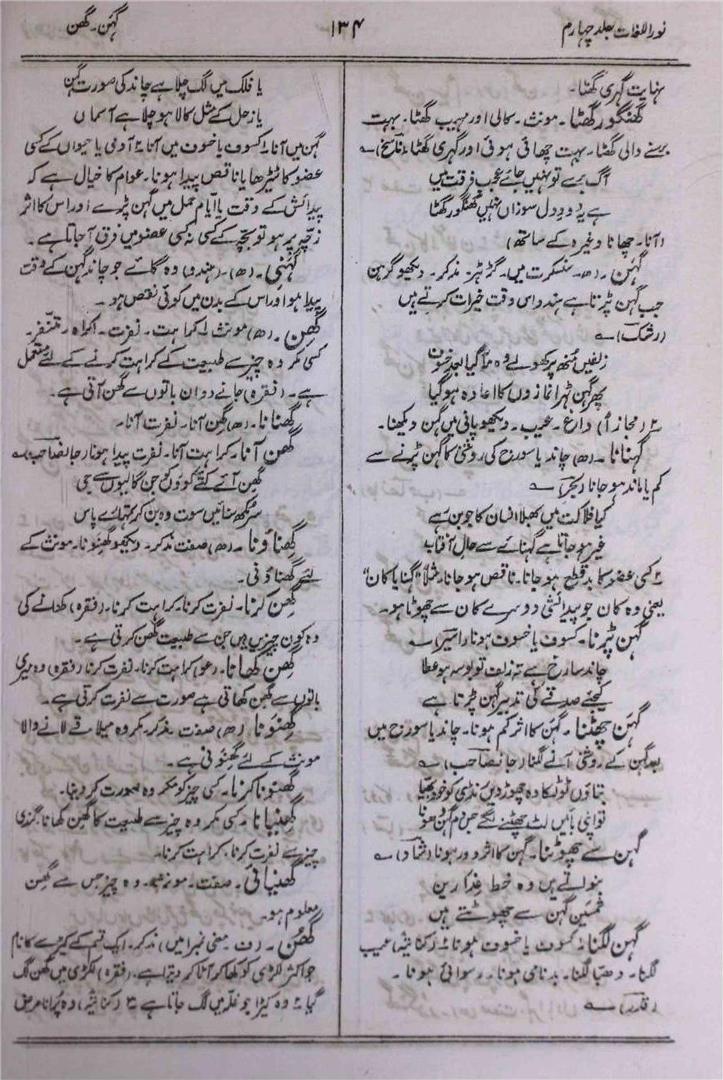 نور اللغات جلد چہارم
۱۳۴
گہن۔ گھن
نہایت گہری گھٹا۔
گھنگور گھٹا۔ مونث۔ کالی اور مہیب گھٹا۔ بہت
برسنے والی گھٹا۔ بہت چھائی ہوئی اور گہری گھٹا (ناسخ) ؎
آگ برسے تو نہیں جائے عجب فرقت میں
ہے یہ دودِ دل سوزاں نہیں گھنگور گھٹا
(آنا۔ چھانا وغیرہ کے ساتھ)
گہن۔ (ھ۔ سنسکرت میں۔ گرہنڑ۔ مذکر۔ دیکھو گرہن
جب گہن پڑتا ہے ہندو اس وقت خیرات کرتے ہیں
(رشک) ؎
زلفیں منھ پر کھولے وہ مرا گیا بعد
پھر گہن نمازوں کا اعادہ ہو گیا
۲ (مجازاً) داغ۔ عیب۔ دیکھو پانی میں گہن دیکھنا۔
گہنانا۔ (ھ) چاند یا سورج کی روشنی کا گہن پڑنے سے
کم یا ماند ہو جانا (بحر) ؎
کیا فلاکت میں بھلا انسان کا جوبن رہے
غیر ہو جاتا ہے گہنانے سے حال آفتاب
۲ کسی عضو کا بد قطع ہو جانا۔ ناقص ہو جانا۔ مثلاً "گہنایا کان"
یعنی وہ کان جو پیدائشی دوسرے کان سے چھوٹا ہو۔
گہن پڑنا۔ کسوف یا خسوف ہونا (اسیر) ؎
چاند سا رخ ہے تہ زلف تو بوسہ ہو عطا
کیجئے صدقے کی تدبیر گہن پڑتا ہے
گہن چھٹنا۔ گہن کا اثر کم ہونا۔ چاند یا سورج میں
بعد گہن کے روشنی آنے لگنا (جانصاحب) ؎
بتاؤں ٹوٹکا وہ چھوڑ دیں رنڈی کو خود بھیّا
تو اپنی بائیں لٹ چھٹنے لگے جس دم گہن
گہن سے چھوٹنا۔ گہن کا اثر دور ہونا (شاد) ؎
بنواتے ہیں وہ خط عذاریں
قمرین گہن سے چھوٹتے ہیں
گہن لگنا۔ کسوف یا خسوف ہونا ۲ (کنایۃً) عیب
لگنا۔ دھبا لگنا۔ بدنامی ہونا۔ رسوائی ہونا۔
(قدر) ؎
یا فلک میں لگ چلا ہے چاند کی صورت گہن
یا زحل کے مثل کالا ہو چلا ہے آسماں
گہن میں آنا۔ ۱ کسوف یا خسوف میں آنا ۲ آدمی یا حیوان کے کسی
عضو کا ٹیڑھا یا ناقص پیدا ہونا۔ عوام کا خیال ہے کہ
پیدائش کے وقت یا ایام حمل میں گہن پڑے اور اس کا اثر
زچہ پر ہو تو بچے کے کسی نہ کسی عضو میں فرق آ جاتا ہے۔
گہنی۔ (ھ) (ہندو) وہ گائے جو چاند گہن کے وقت
پیدا ہو اور اس کے بدن میں کوئی نقص ہو۔
گھن۔ (ھ) مونث ۱ کراہت۔ نفرت۔ اکراہ۔ تنفر۔
کسی مکروہ چیز سے طبیعت کے کراہت کرنے کے لئے مستعمل
ہے۔ (فقرہ) جانے دو ان باتوں سے گھن آتی ہے۔
گھنانا۔ (ھ) گھن آنا۔ نفرت آنا۔
گھن آنا۔ کراہت آنا۔ نفرت پیدا ہونا (جانصاحب) ؎
گھن آئے کتے کو جن گالیوں سے جی
سر سنائیں سوت وہ بن کر تمہارے پاس
گھناؤنا۔ (ھ) صفت مذکر۔ دیکھو گھنونا۔ مونث کے
لئے گھناؤنی۔
گھن کرنا۔ نفرت کرنا۔ کراہت کرنا۔ (فقرہ) کھانے کی
وہ کون چیزیں ہیں جن سے طبیعت گھن کرتی ہے۔
گھن کھانا۔ (عو) کراہت کرنا۔ نفرت کرنا (فقرہ) وہ میری
باتوں سے گھن کھاتی ہے صورت سے نفرت کرتی ہے۔
گھنونا (ھ) صفت۔ مذکر۔ مکروہ۔ متلانے والا
مونث کے لئے گھنونی ہے۔
گھنونا کرنا۔ کسی چیز کو مکروہ صورت کر دینا۔
گھنیانا۔ کسی مکروہ چیز سے طبیعت کا گھن کھانا۔ گندی
چیز سے نفرت کرنا۔ کراہت کرنا۔
گھنیائی۔ صفت۔ مونث۔ وہ چیز جس سے گھن
معلوم ہو۔
گھن۔ (ف۔ معنی نمبر ا میں) مذکر۔ ایک قسم کے کیڑے کا نام
جو اکثر لکڑی کو کھا کر آٹا کر دیتا ہے۔ (فقرہ) لکڑی میں گھن لگ
گیا ۲ وہ کیڑا جو غلہ میں لگ جاتا ہے ۳ (کنایۃً) وہ پرانا مرض